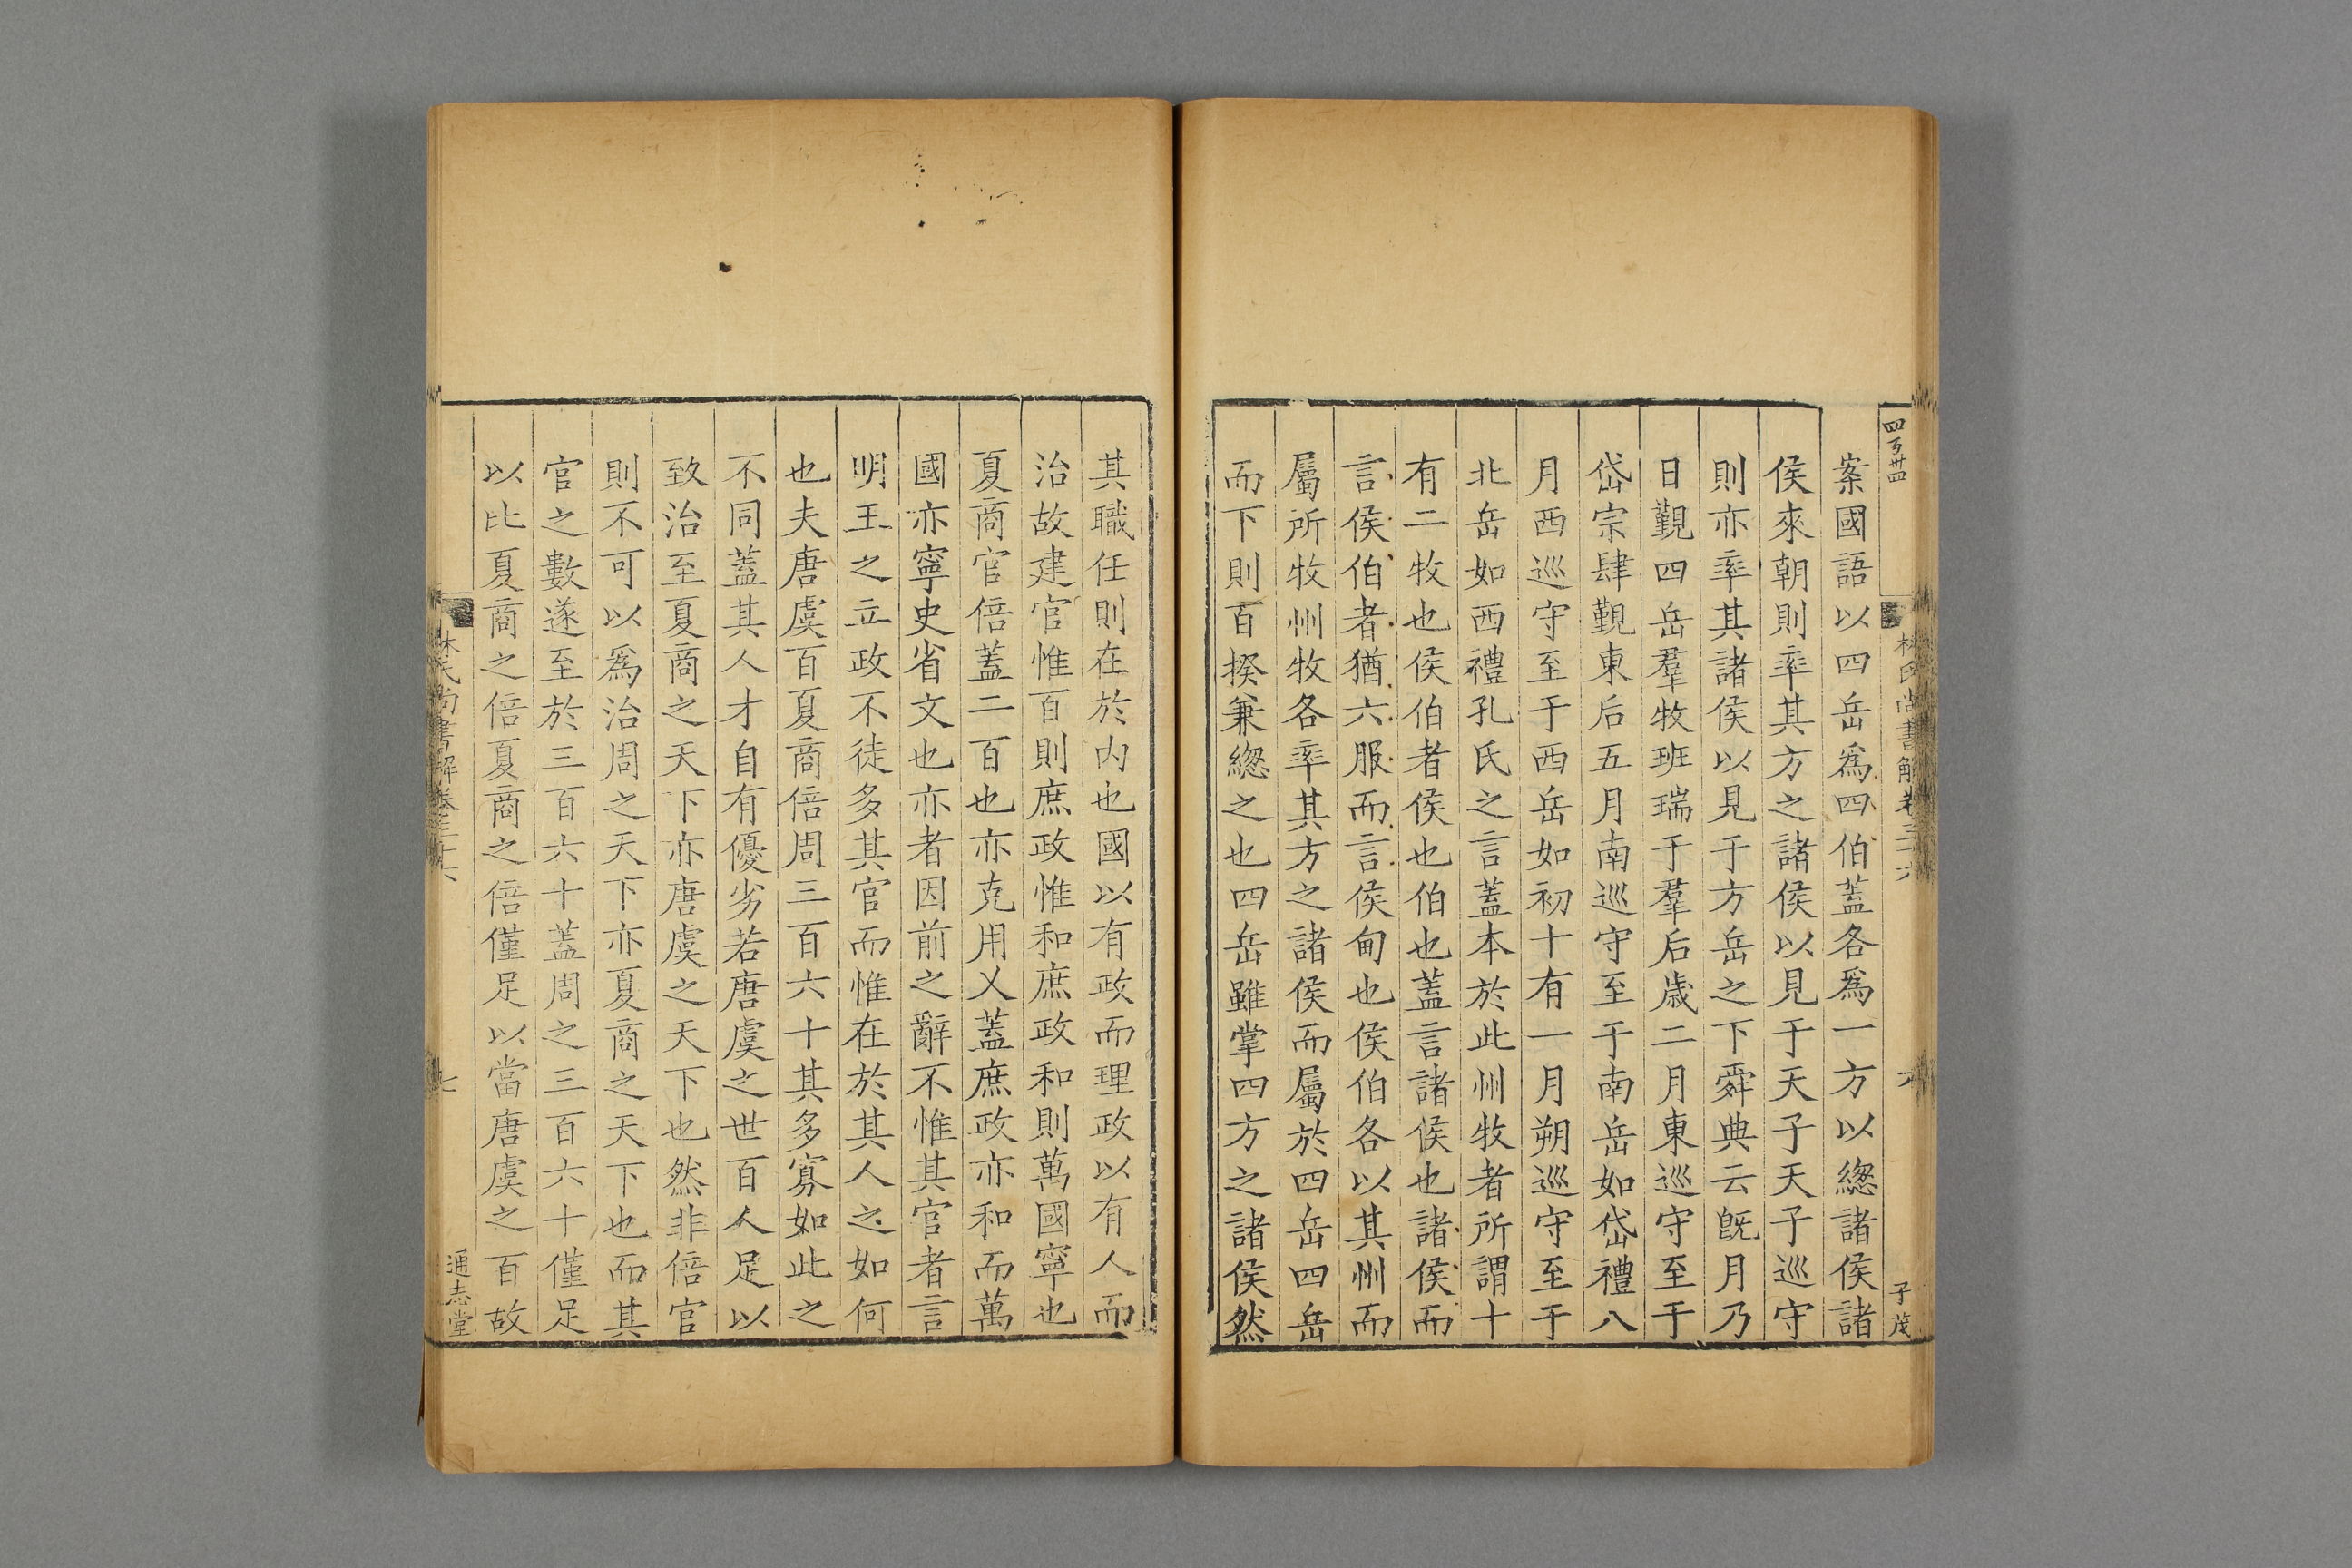 四百卅四
林氏尚書解卷三十六
六
子茂
案國語以四岳爲四伯蓋各爲一方以緫諸侯諸
侯來朝則率其方之諸侯以見于天子天子巡守
則亦率其諸侯以見于方岳之下舜典云旣月乃
日覲四岳羣牧班瑞于羣后歲二月東巡守至于
岱宗肆覲東后五月南巡守至于南岳如岱禮八
月西巡守至于西岳如初十有一月朔巡守至于
北岳如西禮孔氏之言蓋本於此州牧者所謂十
有二牧也侯伯者侯也伯也蓋言諸侯也諸侯而
言侯伯者猶六服而言侯甸也侯伯各以其州而
屬所牧州牧各率其方之諸侯而屬於四岳四岳
而下則百揆兼緫之也四岳雖掌四方之諸侯然
其職任則在於内也國以有政而理政以有人而
治故建官惟百則庶政惟和庶政和則萬國寧也
夏商官倍蓋二百也亦克用乂蓋庶政亦和而萬
國亦寧史省文也亦者因前之辭不惟其官者言
明王之立政不徒多其官而惟在於其人之如何
也夫唐虞百夏商倍周三百六十其多寡如此之
不同蓋其人才自有優劣若唐虞之世百人足以
致治至夏商之天下亦唐虞之天下也然非倍官
則不可以爲治周之天下亦夏商之天下也而其
官之數遂至於三百六十蓋周之三百六十僅足
以比夏商之倍夏商之倍僅足以當唐虞之百故
林氏尚書解卷三十六
七
通志堂